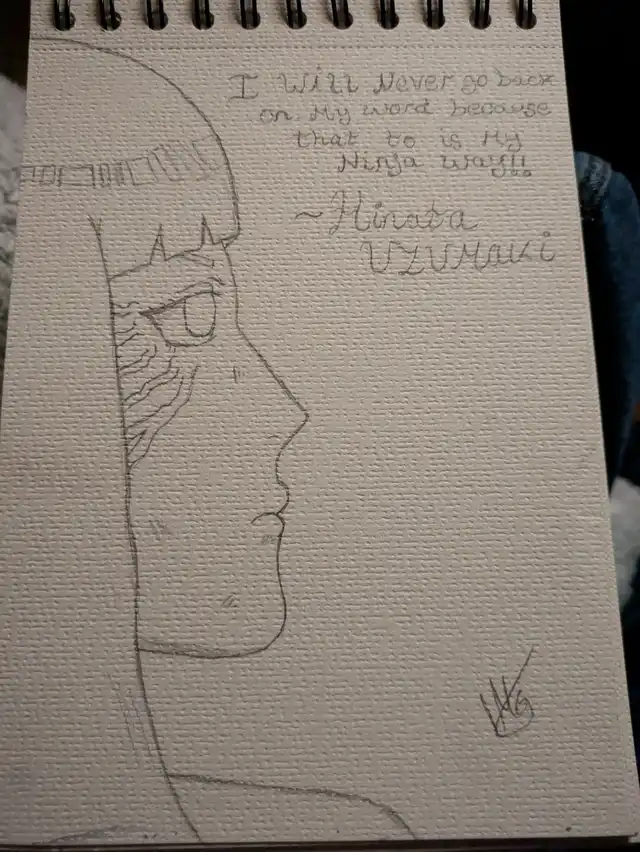 I Will Never go back
on My word because
that to is My
Ninja way!!
~Hinata
UZUMaki